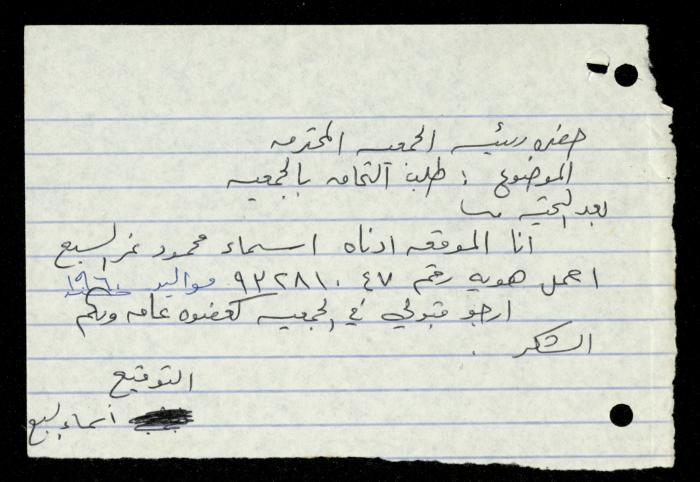 حضره رئيسه الجمعيه المحترمه
الموضوع : طلب التحاقه بالجمعيه
بعد التحيه
أنا الموقعه ادناه اسماء محمود نمر السبع
احمل هويه رقم ٩٣٢٨١٠٤٧ مواليد ١٩٦٠
ارجو قبولي في الجمعيه كعضوه عامه ولكم
الشكر .
التوقيع
أسماء السبع